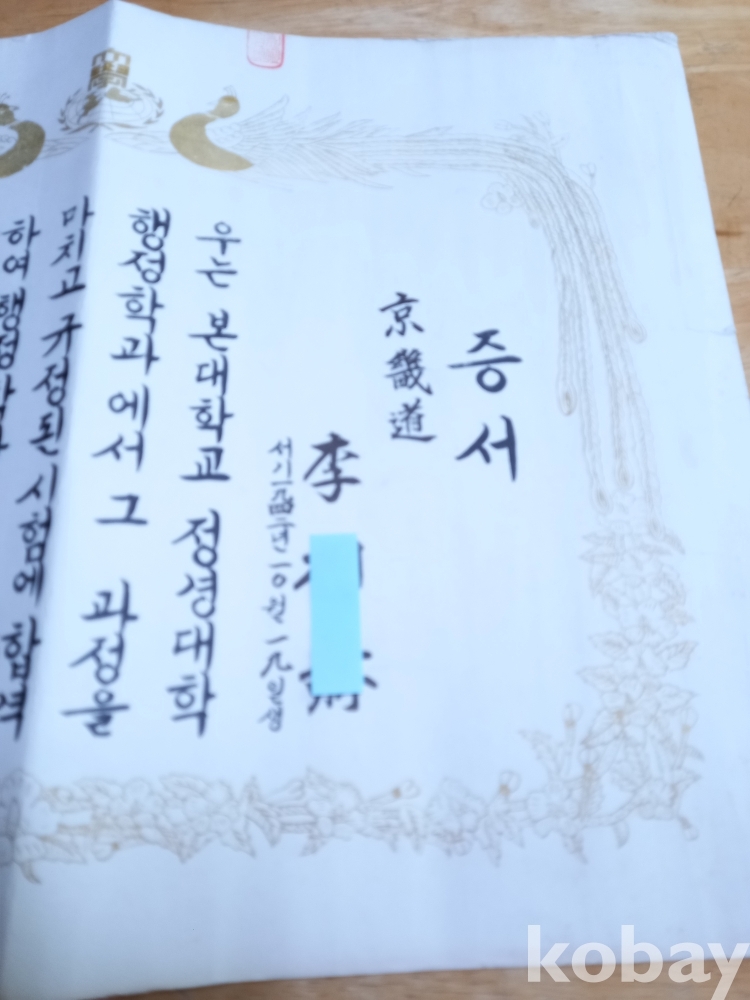 증서
京畿道
李
서기 년 一○월 一九일생
우는 본대학교 정경대학
행정학과에서 그 과정을
마치고 규정된 시험에 합격
하여 행정학
kobay